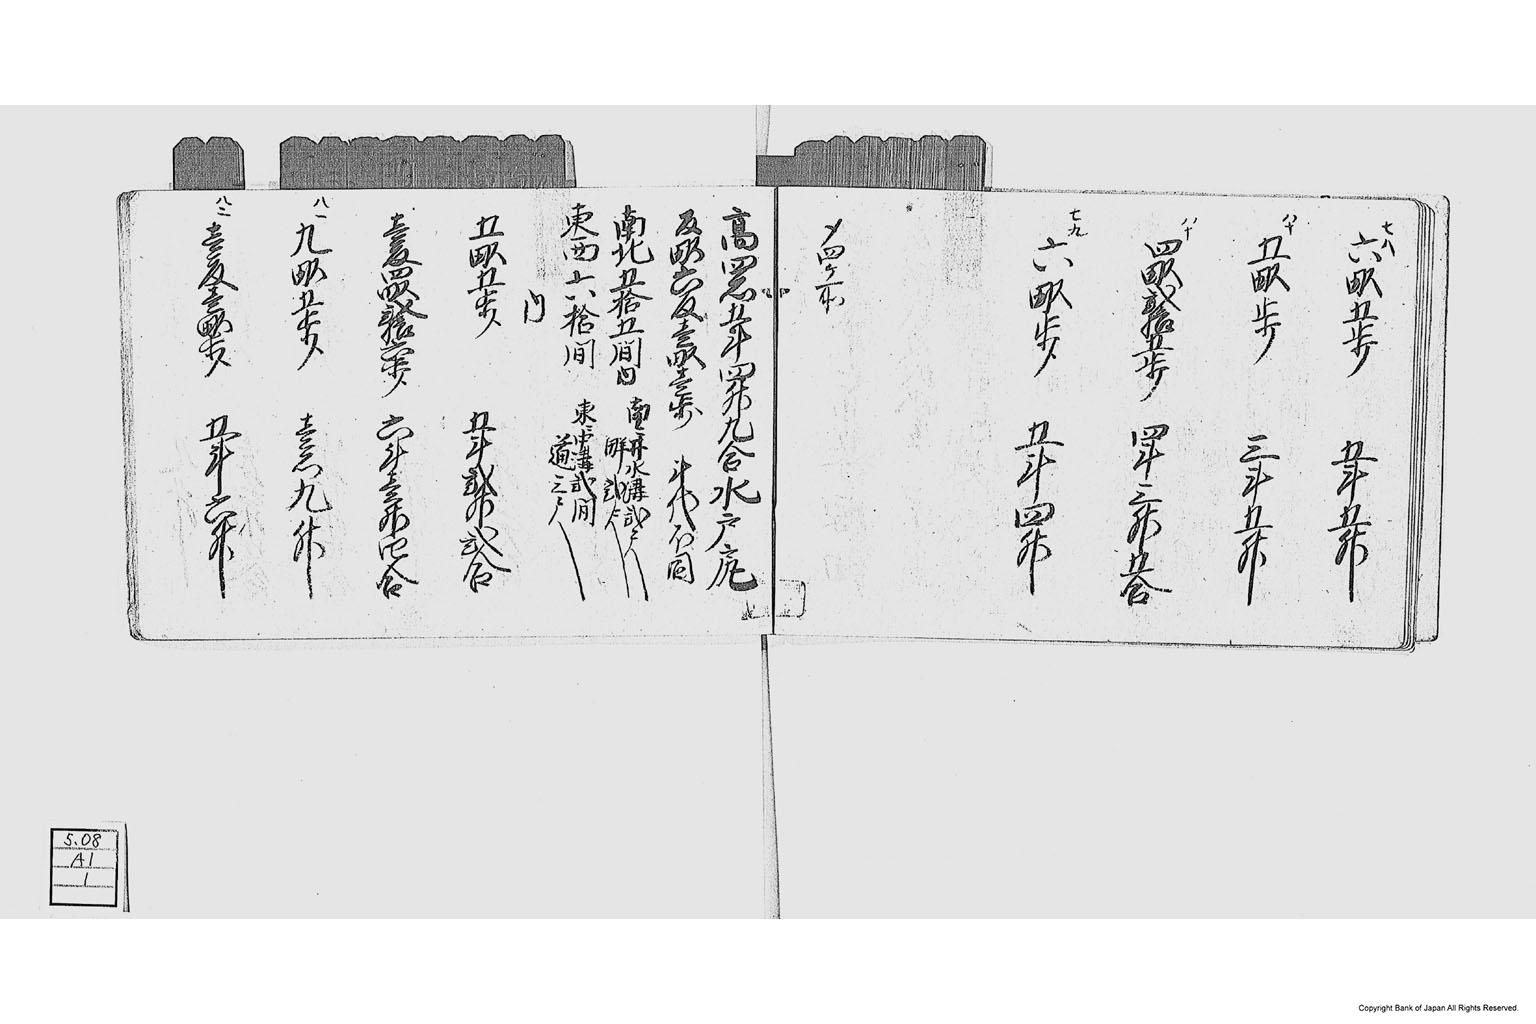 七八
六畝五歩
五斗五升
八十
五畝歩
三斗五升
八十
四畝弐拾五歩
四斗三升五合
七九
六畝歩
五斗四升
〆四ケ所
高四石五斗四升九合水戸庛
反畝六反壱畝壱歩 斗代右同
南北五拾五間内 南ニ井水溝弐尺 畔弐尺
東西六拾間 東ニ溝弐間 道三尺
内
五畝五歩
五斗弐升弐合
壱反四畝弐拾六歩
六斗壱升四合
八一
九畝五歩
壱石九升
八二
壱反壱畝歩
五斗六升
5.08
A1
1
Copyright Bank of Japan All Rights Reserved.